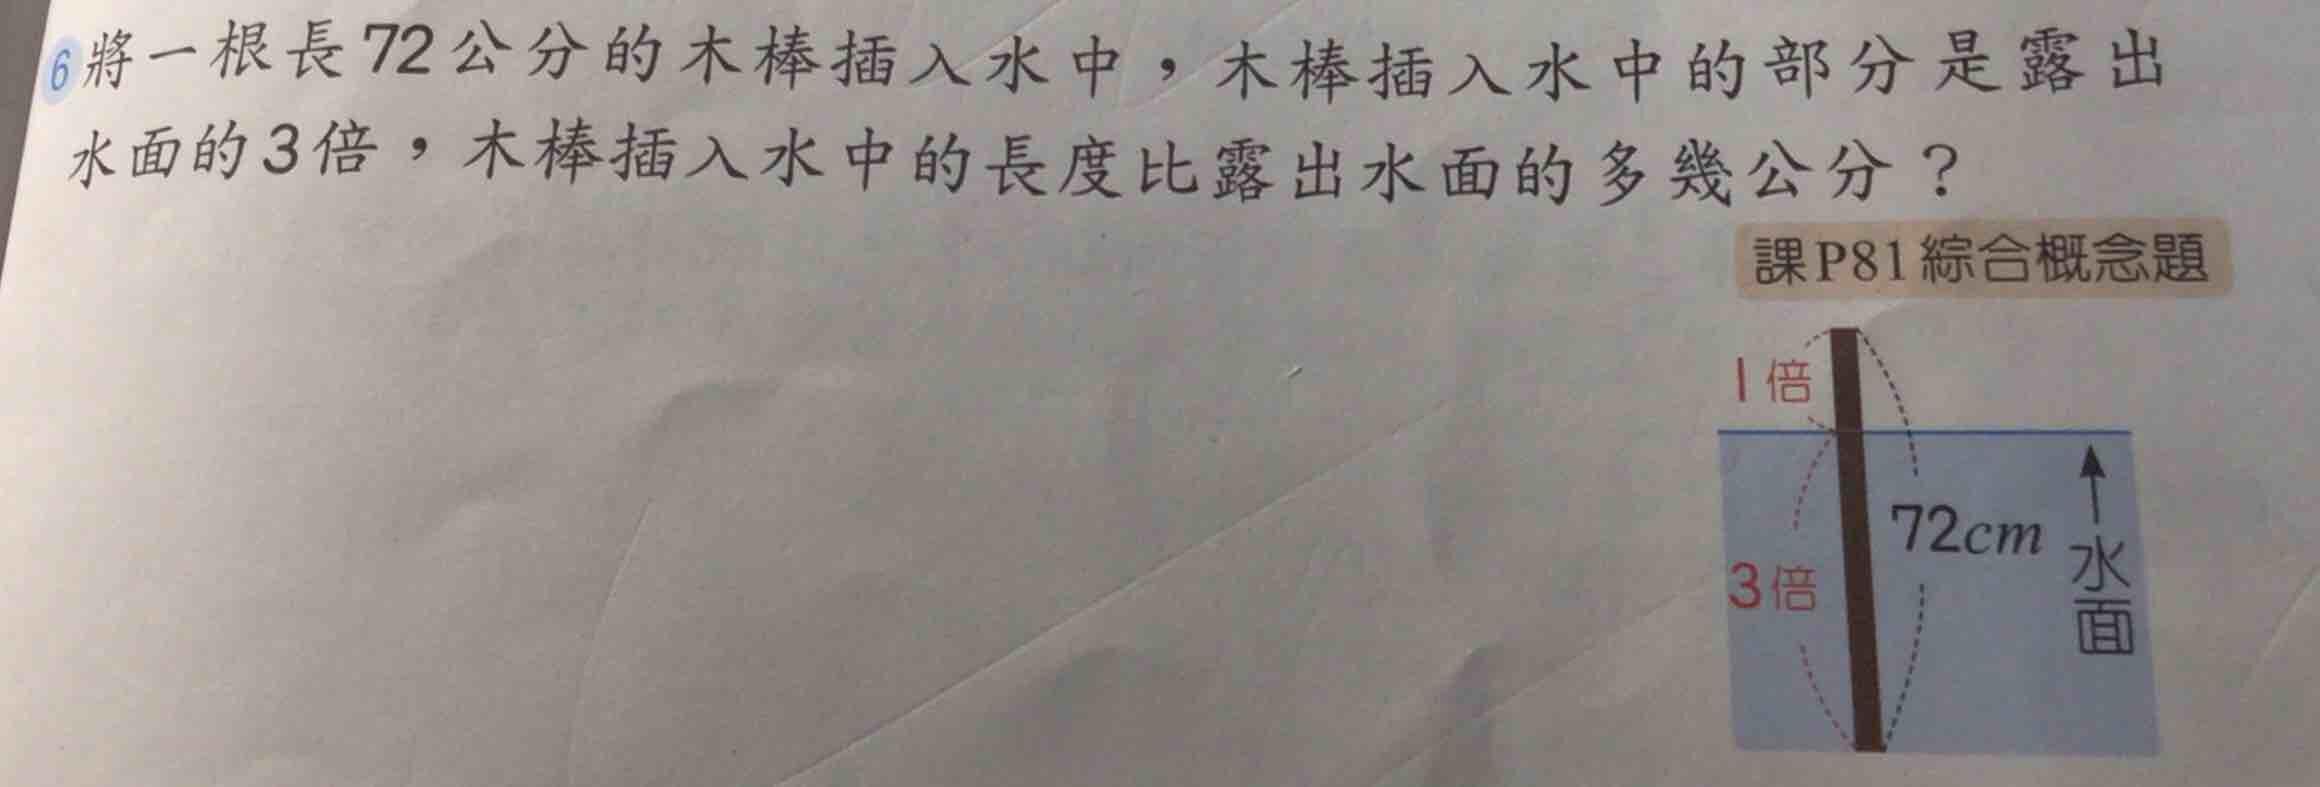 6 將一根長72公分的木棒插入水中，木棒插入水中的部分是露出
水面的3倍，木棒插入水中的長度比露出水面的多幾公分？
課P81綜合概念題
1倍
72cm
3倍
水面